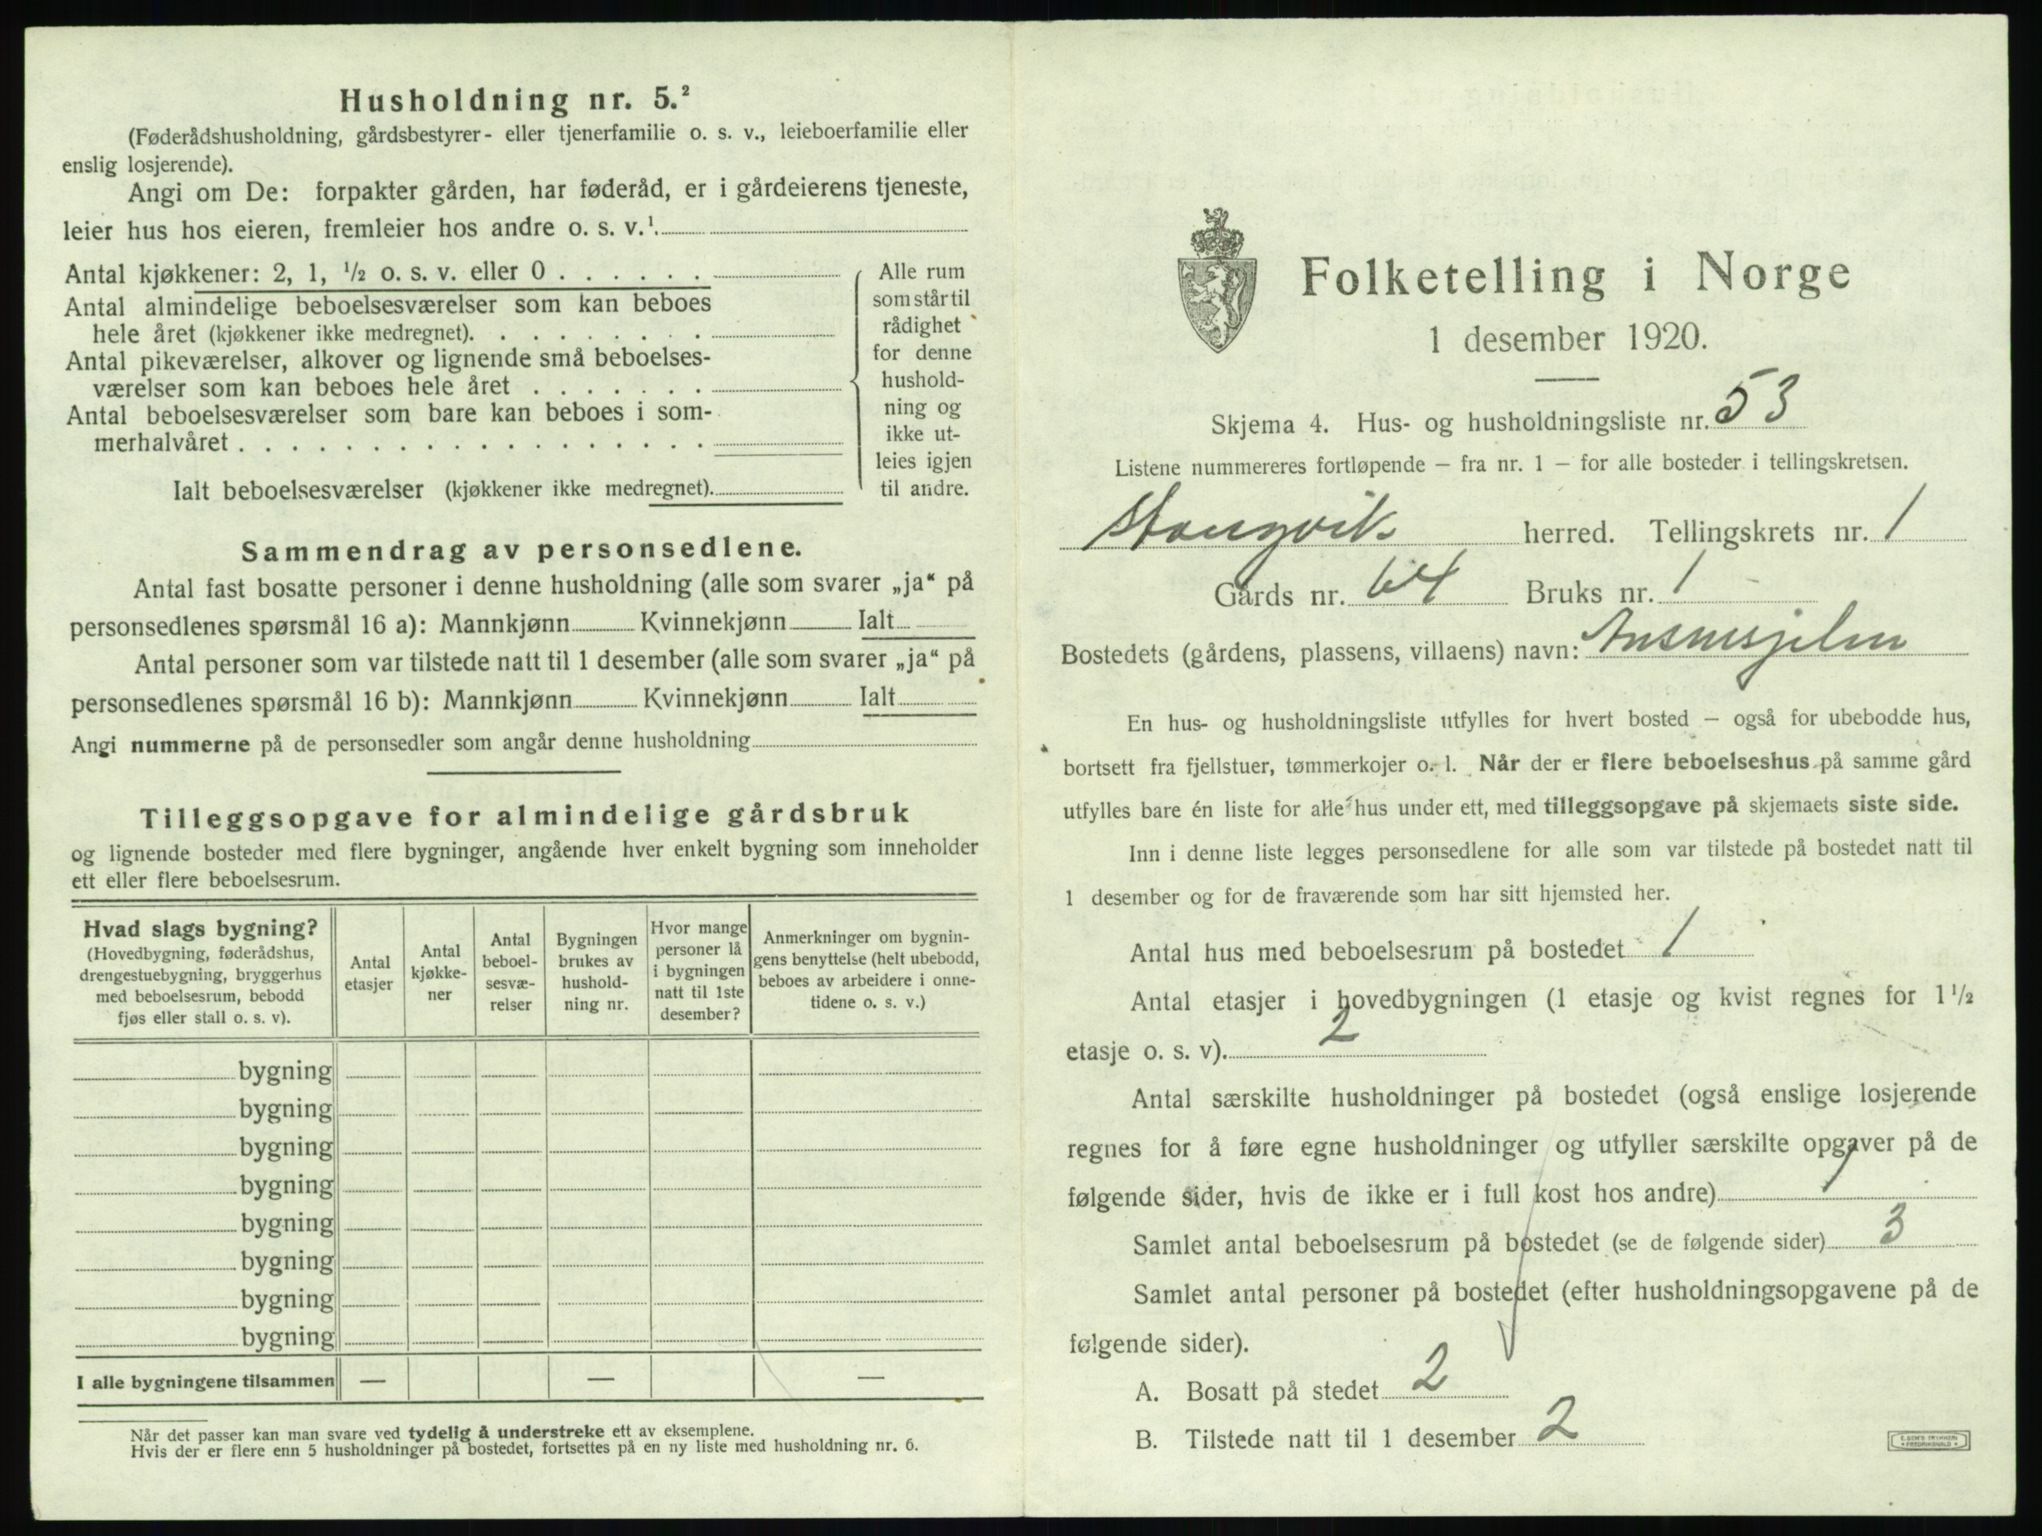 Husholdning nr. 5.²
(Føderådshusholdning, gårdsbestyrer- eller tjenerfamilie o. s. v., leieboerfamilie eller
enslig losjerende).
Angi om De: forpakter gården, har føderåd, er i gårdeierens tjeneste,
leier hus hos eieren, fremleier hos andre o. s. v.¹
Antal kjøkkener: 2, 1, ½ o. s. v. eller 0
Antal almindelige beboelsesværelser som kan beboes
hele året (kjøkkener ikke medregnet).
Antal pikeværelser, alkover og lignende små beboelses-
værelser som kan beboes hele året
Antal beboelsesværelser som bare kan beboes i som-
merhalvåret
Ialt beboelsesværelser (kjøkkener ikke medregnet).
Alle rum
som står til
rådighet
for denne
hushold-
ning og
ikke ut-
leies igjen
til andre.
Sammendrag av personsedlene.
Antal fast bosatte personer i denne husholdning (alle som svarer „ja“ på
personsedlenes spørsmål 16 a): Mannkjønn Kvinnekjønn Ialt
Antal personer som var tilstede natt til 1 desember (alle som svarer „ja“ på
personsedlenes spørsmål 16 b): Mannkjønn Kvinnekjønn Ialt
Angi nummerne på de personsedler som angår denne husholdning
Tilleggsopgave for almindelige gårdsbruk
og lignende bosteder med flere bygninger, angående hver enkelt bygning som inneholder
ett eller flere beboelsesrum.
Hvad slags bygning?
(Hovedbygning, føderådshus,
drengestuebygning, bryggerhus
med beboelsesrum, bebodd
fjøs eller stall o. s. v).
Antal
etasjer
Antal
kjøkke-
ner
Antal
beboel-
sesvæ-
relser
Bygningen
brukes av
hushold-
ning nr.
Hvor mange
personer lå
i bygningen
natt til 1ste
desember?
Anmerkninger om bygnin-
gens benyttelse (helt ubebodd,
beboes av arbeidere i onne-
tidene o. s. v.)
bygning
bygning
bygning
bygning
bygning
bygning
bygning
bygning
I alle bygningene tilsammen — — —
Når det passer kan man svare ved tydelig å understreke ett av eksemplene.
Hvis der er flere enn 5 husholdninger på bostedet, fortsettes på en ny liste med husholdning nr. 6.
Folketelling i Norge
1 desember 1920.
Skjema 4. Hus- og husholdningsliste nr. 53
Listene nummereres fortløpende – fra nr. 1 – for alle bosteder i tellingskretsen.
Stangvik herred. Tellingskrets nr. 1
Gårds nr. 64 Bruks nr. 1
Bostedets (gårdens, plassens, villaens) navn:
En hus- og husholdningsliste utfylles for hvert bosted – også for ubebodde hus,
bortsett fra fjellstuer, tømmerkojer o. l. Når der er flere beboelseshus på samme gård
utfylles bare én liste for alle hus under ett, med tilleggsopgave på skjemaets siste side.
Inn i denne liste legges personsedlene for alle som var tilstede på bostedet natt til
1 desember og for de fraværende som har sitt hjemsted her.
Antal hus med beboelsesrum på bostedet 1
Antal etasjer i hovedbygningen (1 etasje og kvist regnes for 1½
etasje o. s. v). 2
Antal særskilte husholdninger på bostedet (også enslige losjerende
regnes for å føre egne husholdninger og utfyller særskilte opgaver på de
følgende sider, hvis de ikke er i full kost hos andre) 1
Samlet antal beboelsesrum på bostedet (se de følgende sider) 3
Samlet antal personer på bostedet (efter husholdningsopgavene på de
følgende sider).
A. Bosatt på stedet 2
B. Tilstede natt til 1 desember 2